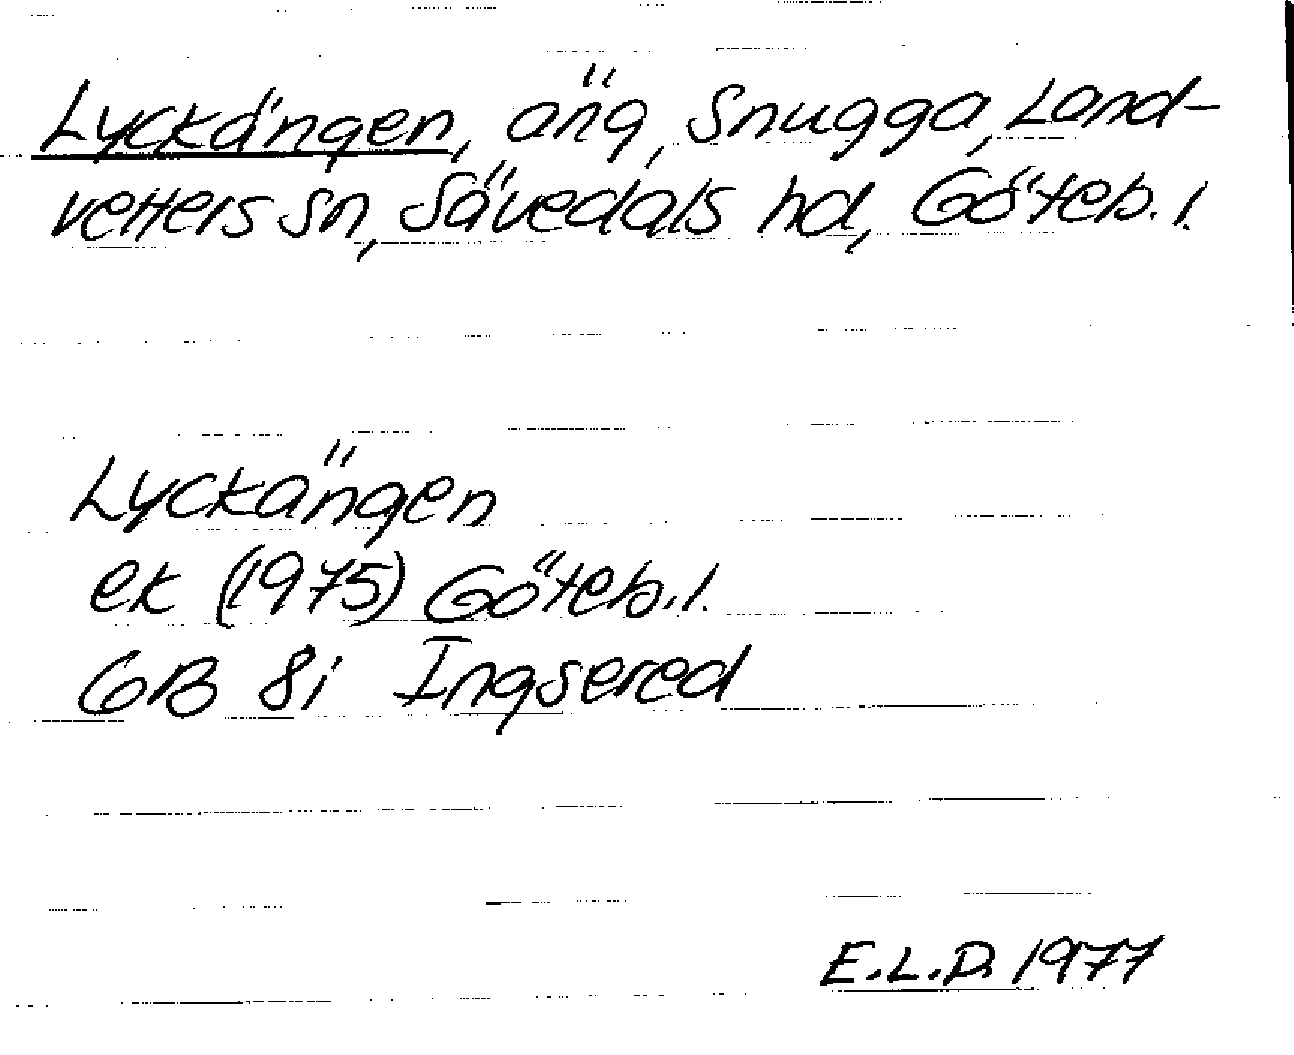 Lyckängen, äng, Snugga, Land-
vetters sn, Sävedals hd, Göteb. l.
Lyckängen
ek (1975) Göteb. l.
GB 8i Ingsered
E.L.D. 1977